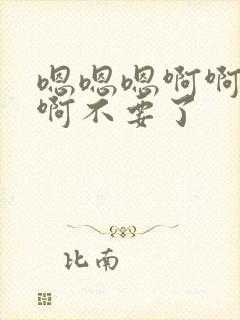 嗯嗯嗯啊啊
啊不要了
比南